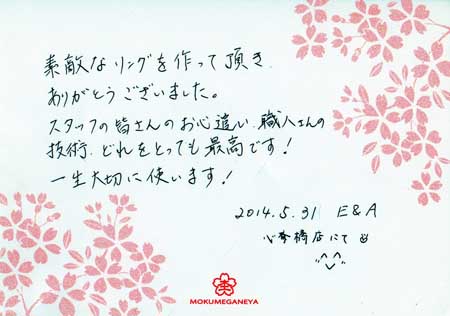 素敵なリングを作って頂き
ありがとうございました。
スタッフの皆さんのお心遣い、職人さんの
技術、どれをとっても最高です！
一生大切に使います！
2014.5.31 E&A
心斎橋店にて
MOKUMEGANEYA